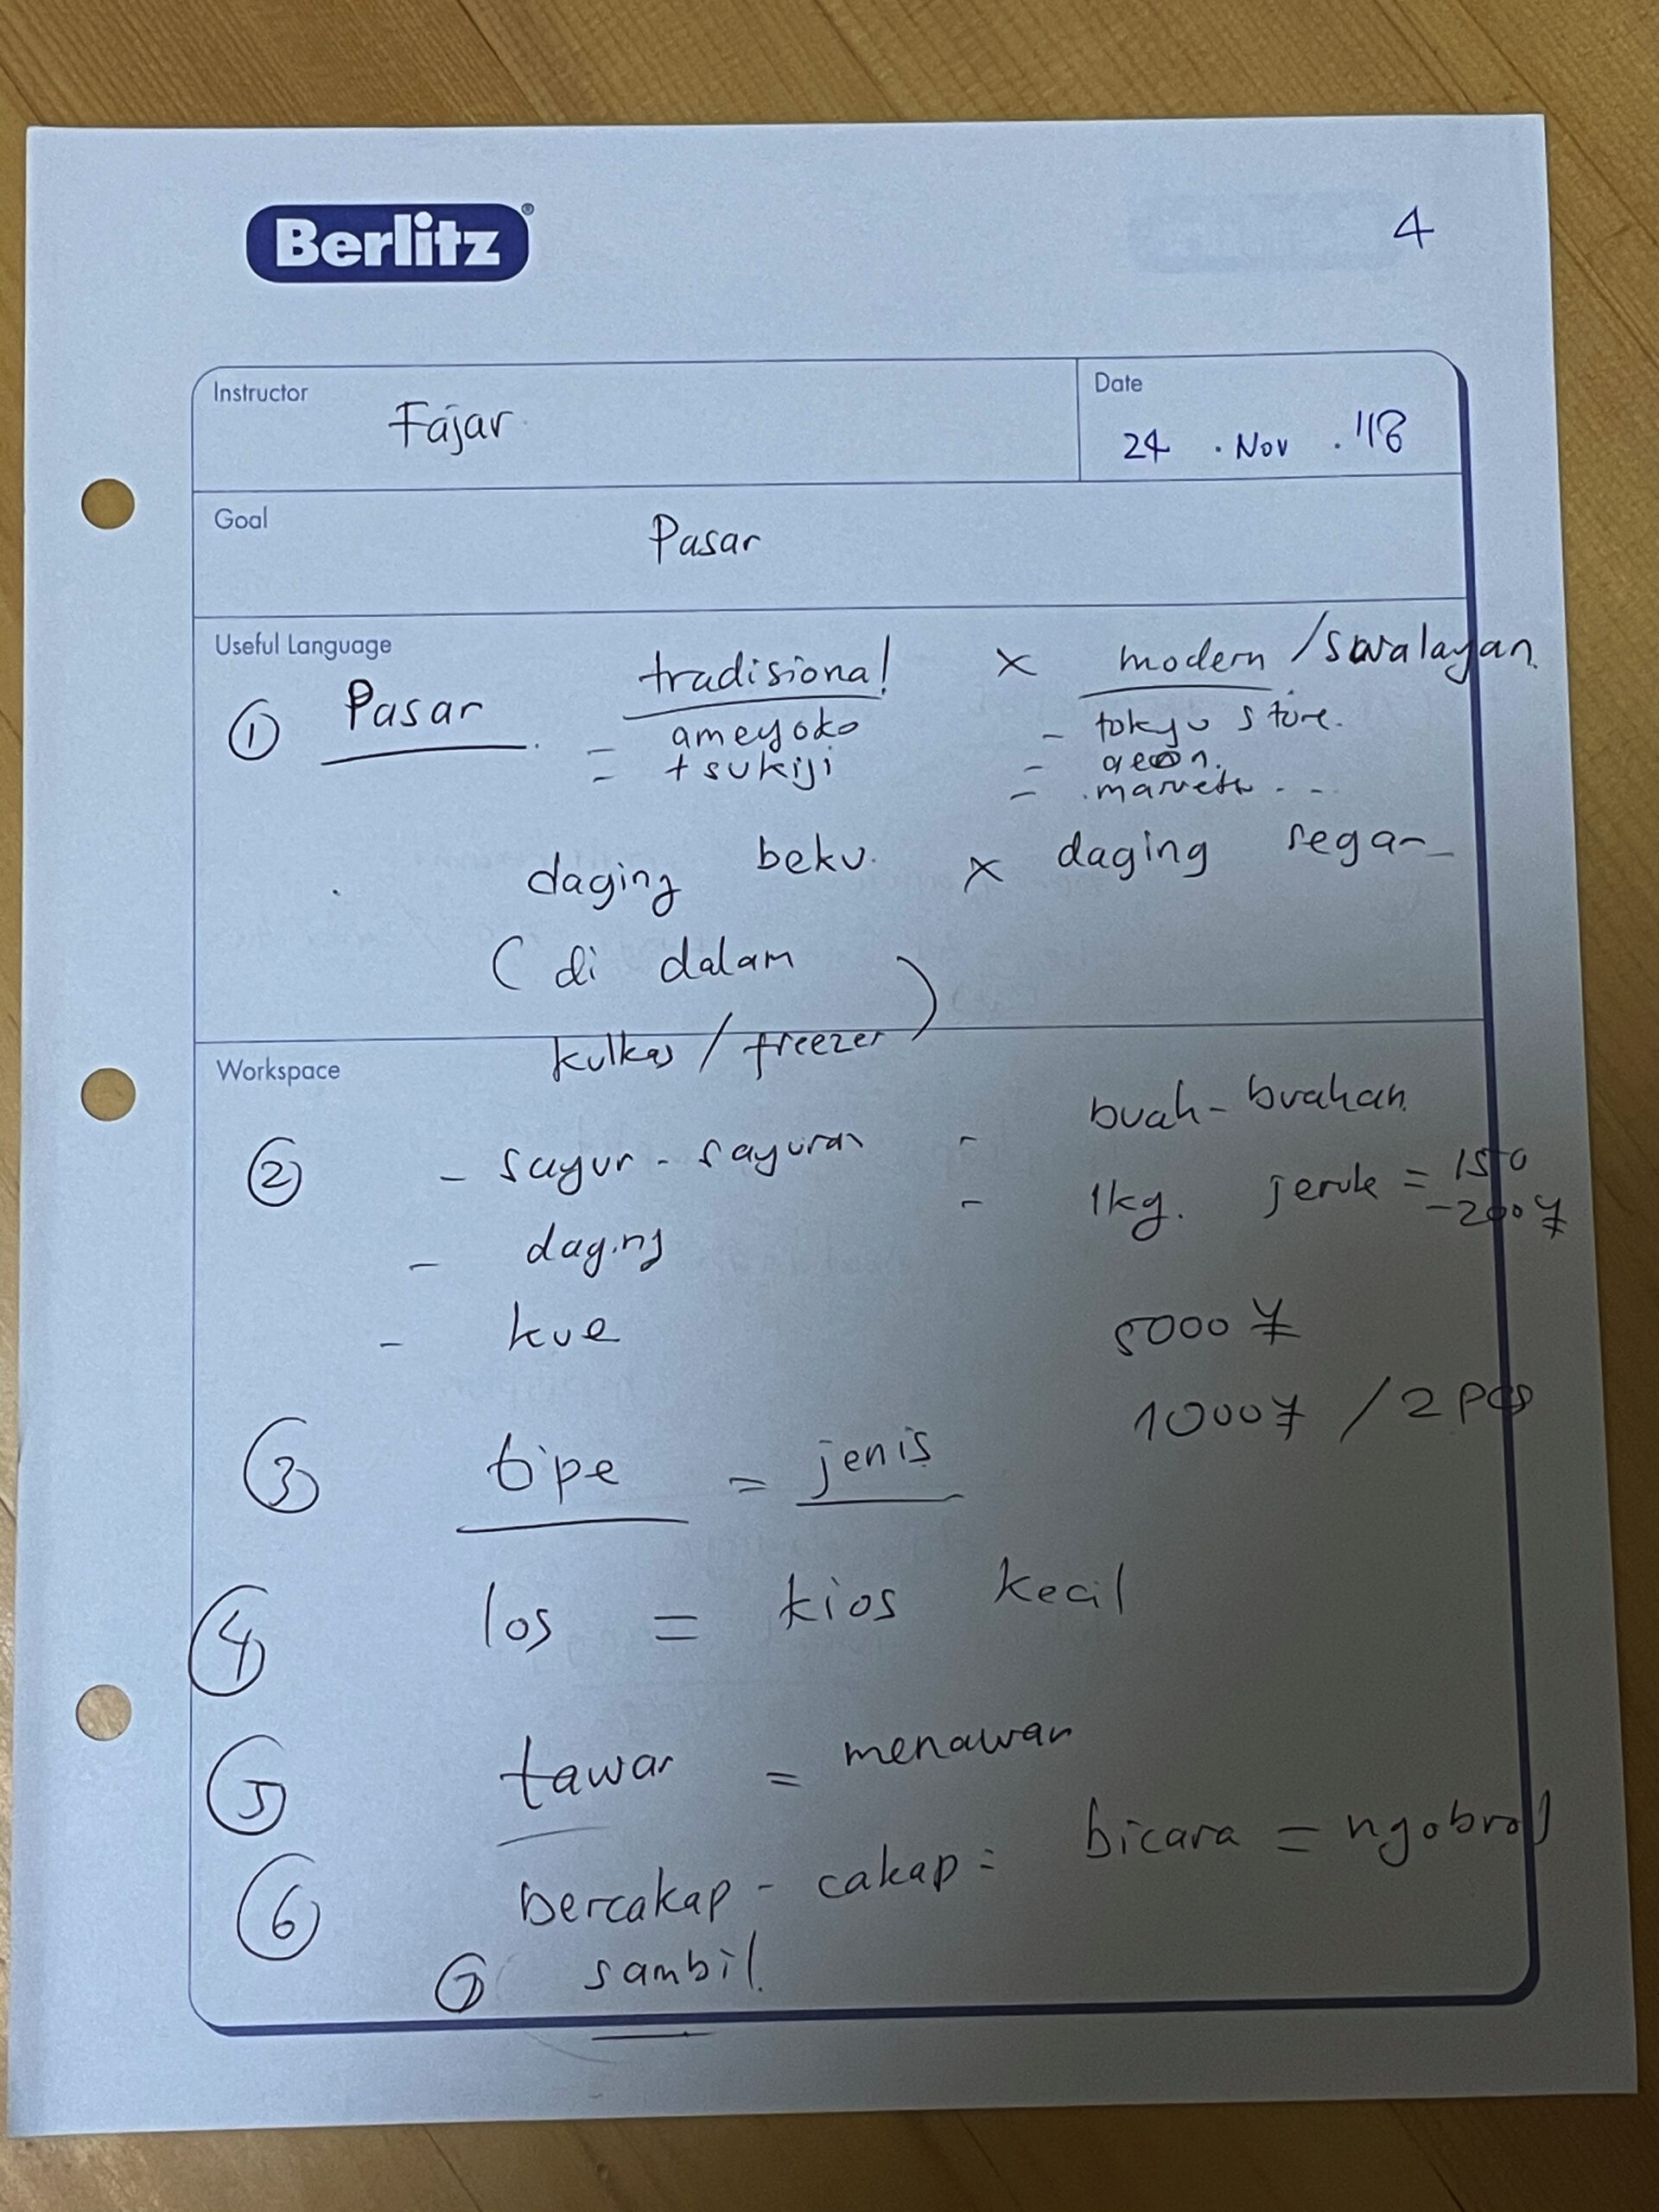 Berlitz®
4
Instructor
Fajar
Date
24 . Nov . '18
Goal
Pasar
Useful Language
① Pasar tradisional × modern / swalayan
= ameyoko - tokyu store.
= tsukiji = aeon.
= maruetsu . - -
daging beku. × daging segar
( di dalam
kulkas / freezer )
Workspace
② - sayur - sayuran - buah - buahan
- daging - 1kg. jeruk = 150
-200 ¥
- kue 5000 ¥
1000 ¥ / 2 pcs
③ tipe = jenis
④ los = kios kecil
⑤ tawar = menawar
⑥ bercakap - cakap = bicara = ngobrol
⑦ sambil